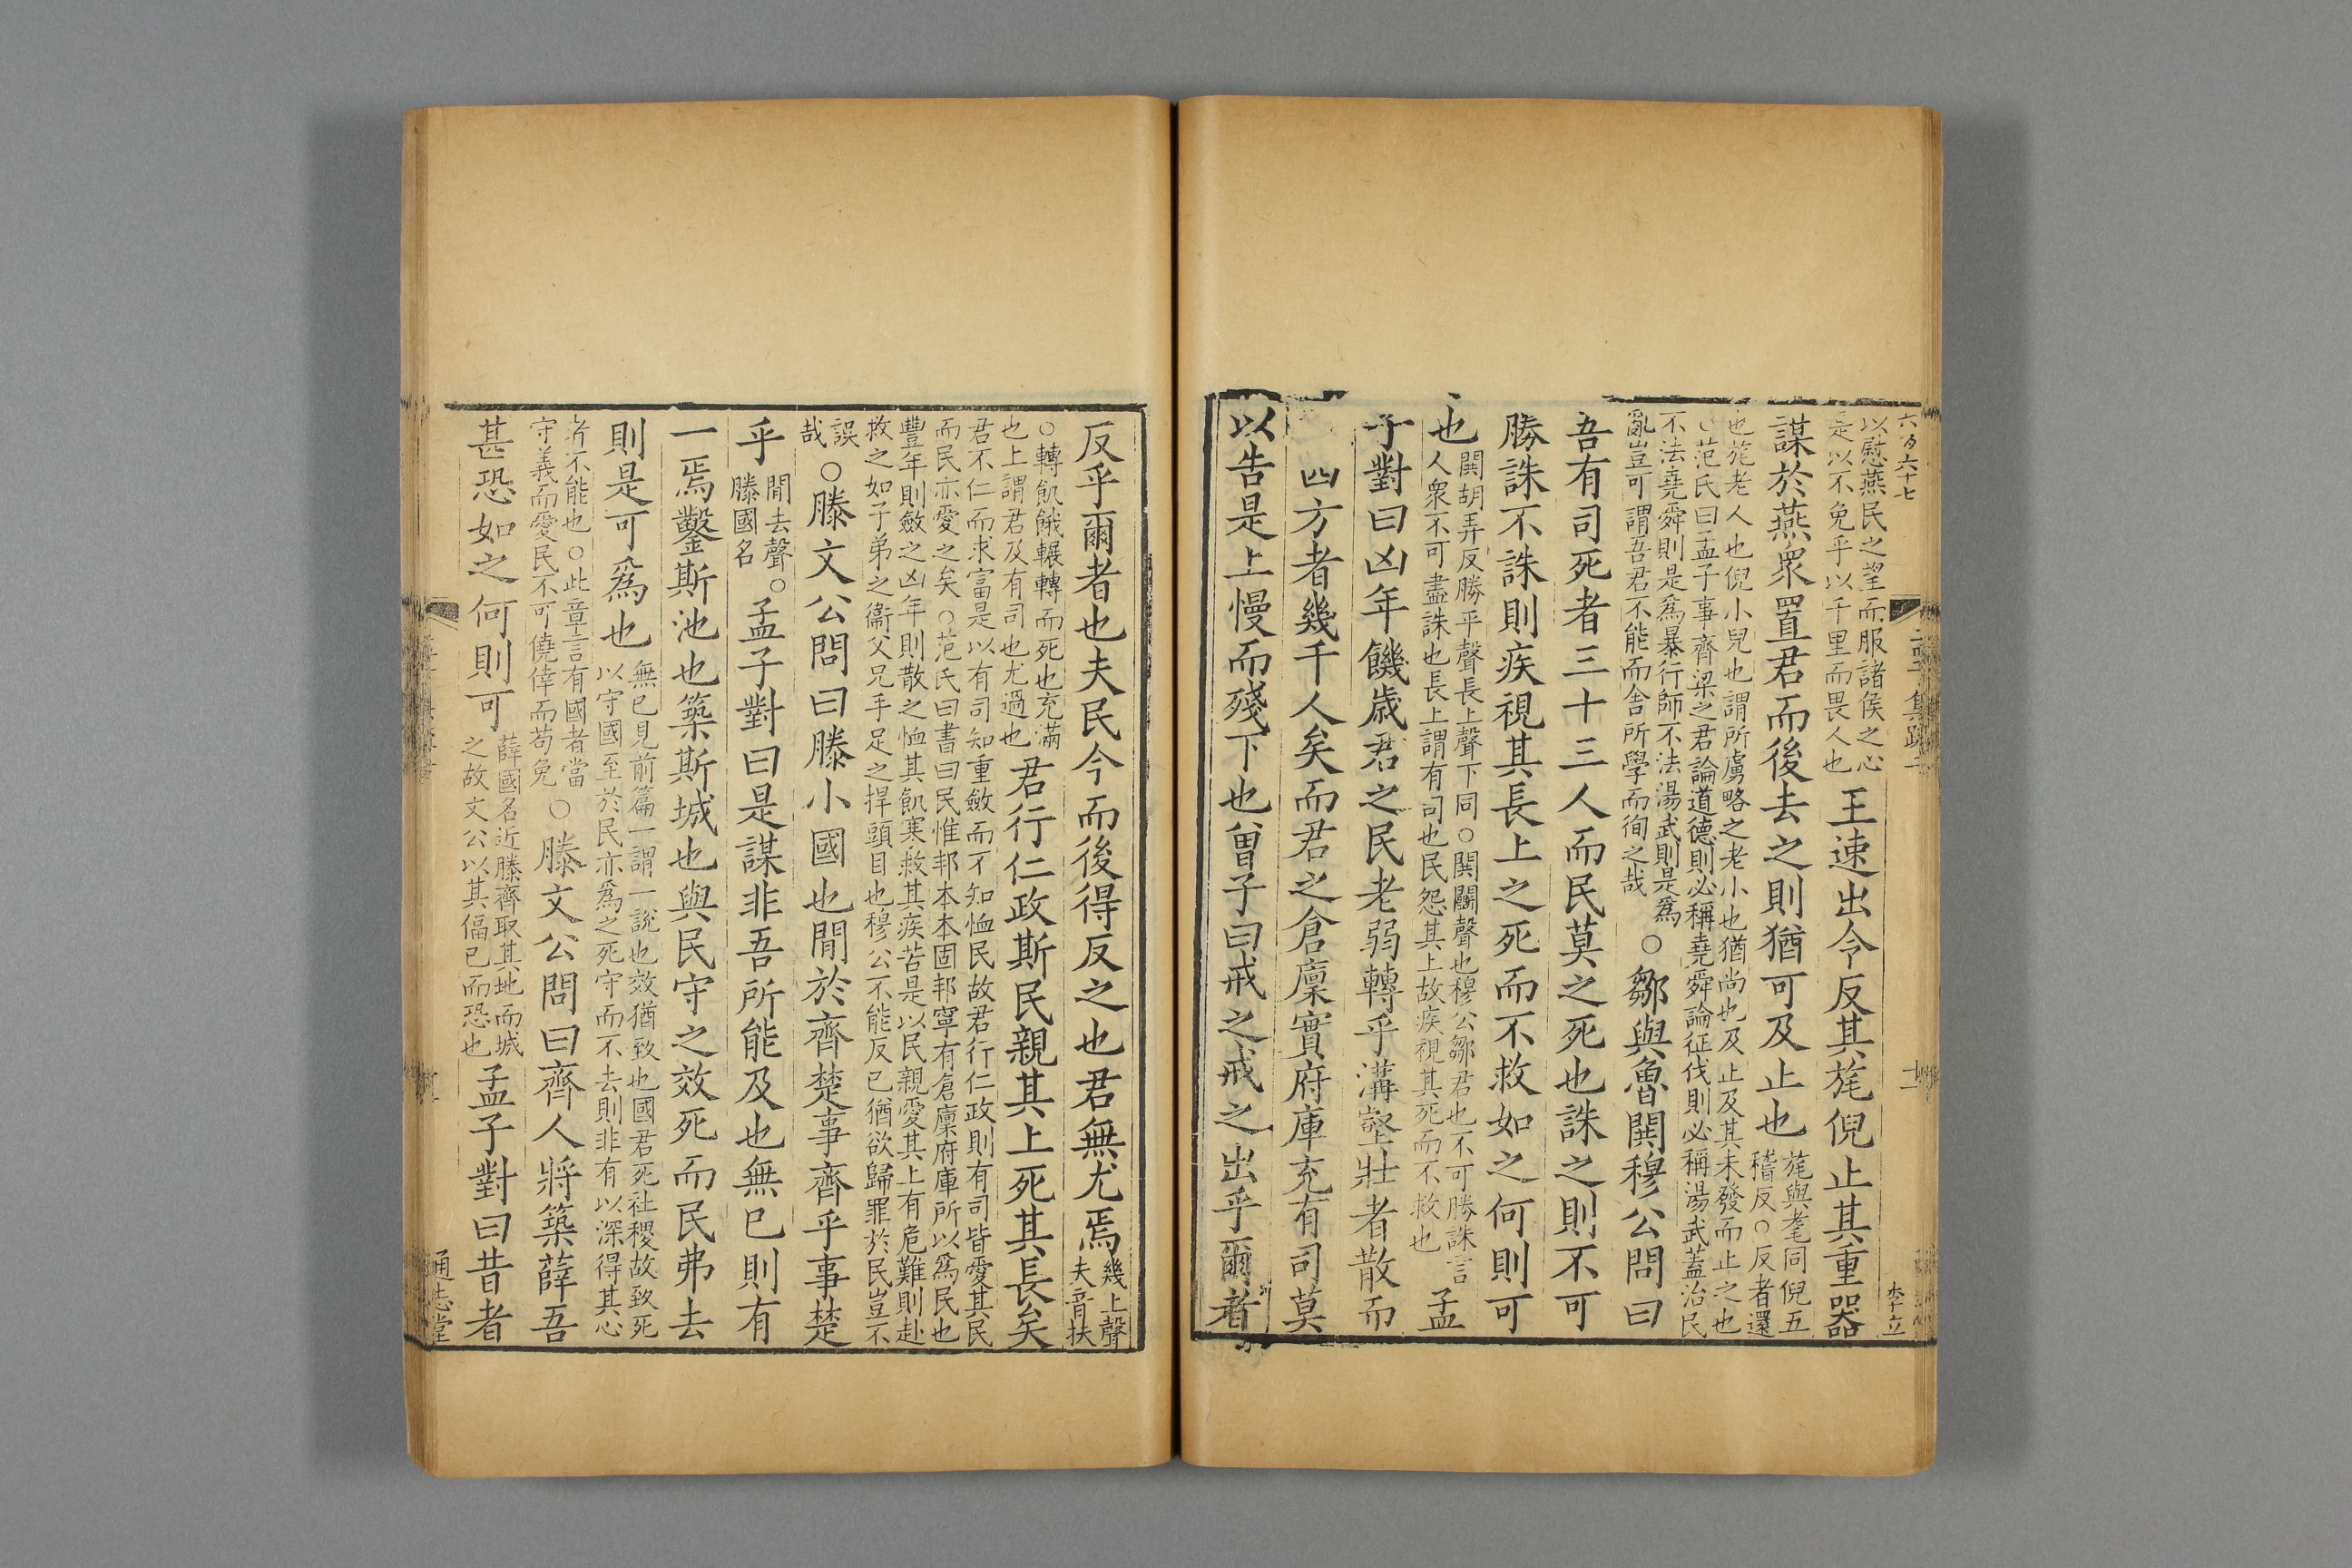 以慰燕民之望而服諸侯之心
是以不免乎以千里而畏人也
王速出令反其旄倪止其重器
謀於燕衆置君而後去之則猶可及止也
旄與耄同倪五
稽反○反者還
也旄老人也倪小兒也謂所虜略之老小也猶尚也及止及其未發而止之也
○范氏曰孟子事齊梁之君論道德則必稱堯舜論征伐則必稱湯武蓋治民
不法堯舜則是爲暴行師不法湯武則是爲
亂豈可謂吾君不能而舍所學而徇之哉
○鄒與魯鬨穆公問曰
吾有司死者三十三人而民莫之死也誅之則不可
勝誅不誅則疾視其長上之死而不救如之何則可
也
鬨胡弄反勝平聲長上聲下同○鬨鬬聲也穆公鄒君也不可勝誅言
人衆不可盡誅也長上謂有司也民怨其上故疾視其死而不救也
孟
子對曰凶年饑歲君之民老弱轉乎溝壑壯者散而
四方者幾千人矣而君之倉廩實府庫充有司莫
以告是上慢而殘下也曾子曰戒之戒之出乎爾者
六百六十七
十一
李立
反乎爾者也夫民今而後得反之也君無尤焉
幾上聲
夫音扶
○轉飢餓輾轉而死也充滿
也上謂君及有司也尤過也
君行仁政斯民親其上死其長矣
君不仁而求富是以有司知重斂而不知恤民故君行仁政則有司皆愛其民
而民亦愛之矣○范氏曰書曰民惟邦本本固邦寧有倉廩府庫所以爲民也
豐年則斂之凶年則散之恤其飢寒救其疾苦是以民親愛其上有危難則赴
救之如子弟之衞父兄手足之捍頭目也穆公不能反己猶欲歸罪於民豈不
誤
哉
○滕文公問曰滕小國也閒於齊楚事齊乎事楚
乎
閒去聲○
滕國名
孟子對曰是謀非吾所能及也無已則有
一焉鑿斯池也築斯城也與民守之效死而民弗去
則是可爲也
無已見前篇一謂一說也效猶致也國君死社稷故致死
以守國至於民亦爲之死守而不去則非有以深得其心
者不能也○此章言有國者當
守義而愛民不可僥倖而苟免
○滕文公問曰齊人將築薛吾
甚恐如之何則可
薛國名近滕齊取其地而城
之故文公以其偪己而恐也
孟子對曰昔者
通志堂